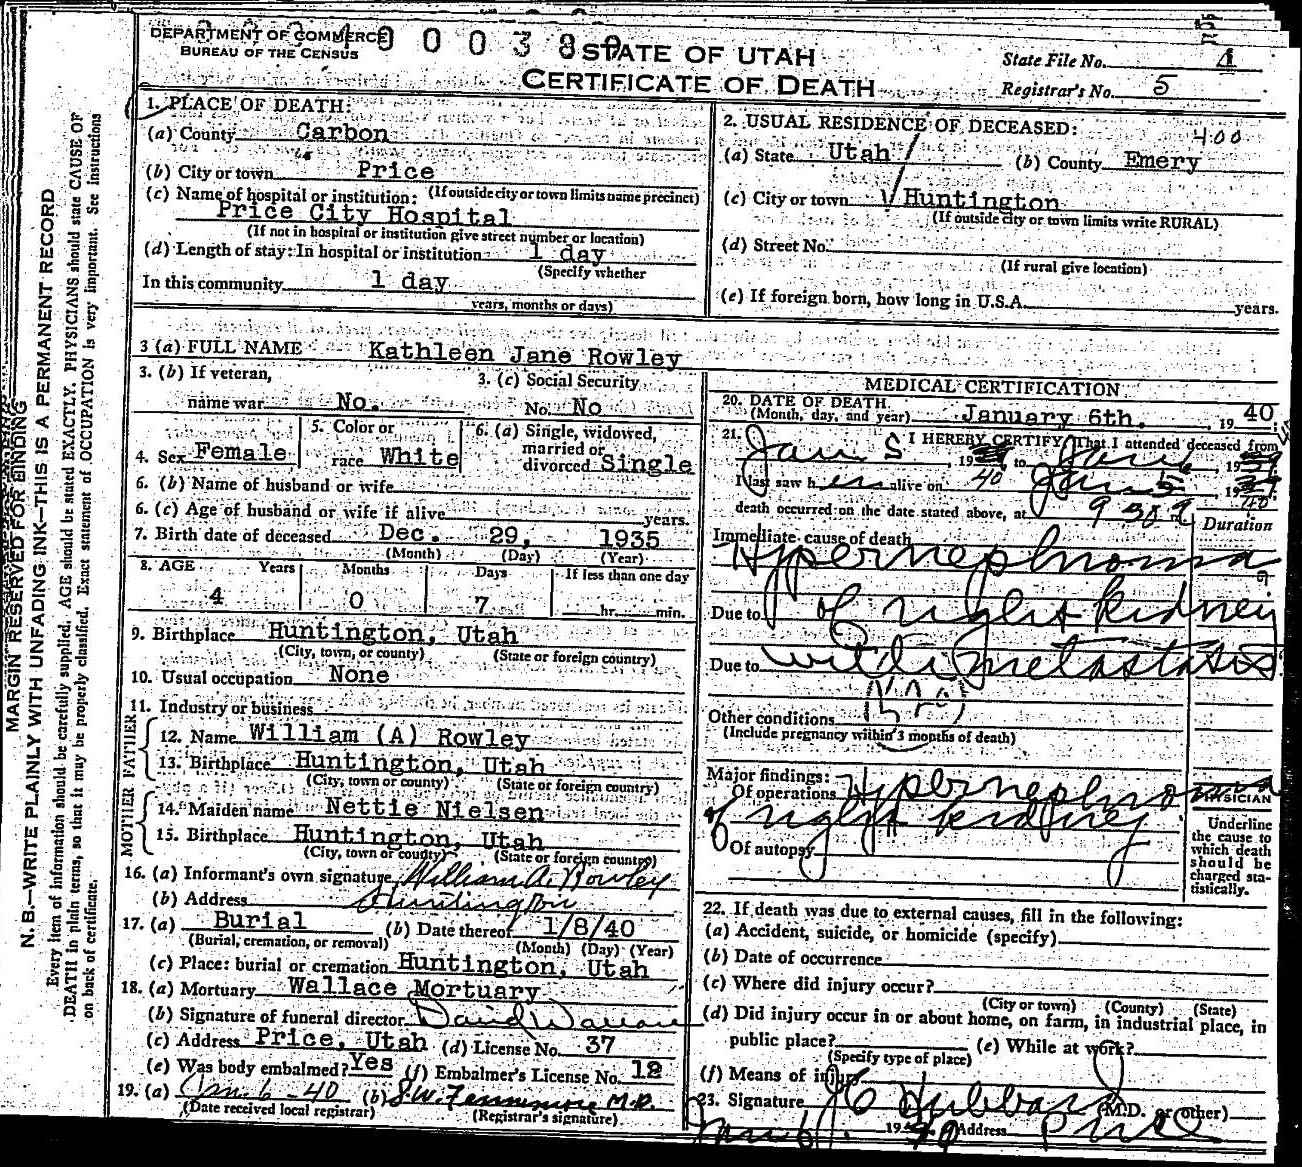 DEPARTMENT OF COMMERCE
BUREAU OF THE CENSUS
STATE OF UTAH
CERTIFICATE OF DEATH
State File No.
Registrar's No. 5
MARGIN RESERVED FOR BINDING
N. B.—WRITE PLAINLY WITH UNFADING INK—THIS IS A PERMANENT RECORD
Every item of information should be carefully supplied. AGE should be stated EXACTLY. PHYSICIANS should state CAUSE OF
DEATH in plain terms, so that it may be properly classified. Exact statement of OCCUPATION is very important. See instructions
on back of certificate.
1. PLACE OF DEATH:
(a) County Carbon
(b) City or town Price
(If outside city or town limits name precinct)
(c) Name of hospital or institution:
Price City Hospital
(If not in hospital or institution give street number or location)
(d) Length of stay: In hospital or institution 1 day
(Specify whether
In this community 1 day
years, months or days)
2. USUAL RESIDENCE OF DECEASED:
400
(a) State Utah (b) County Emery
(c) City or town Huntington
(If outside city or town limits write RURAL)
(d) Street No.
(If rural give location)
(e) If foreign born, how long in U.S.A. years.
3 (a) FULL NAME Kathleen Jane Rowley
3. (b) If veteran,
name war No.
3. (c) Social Security
No. No
4. Sex Female
5. Color or
race White
6. (a) Single, widowed,
married or
divorced Single
6. (b) Name of husband or wife
6. (c) Age of husband or wife if alive years.
7. Birth date of deceased Dec. 29, 1935
(Month) (Day) (Year)
8. AGE Years Months Days If less than one day
4 0 7 hr. min.
9. Birthplace Huntington, Utah
(City, town, or county) (State or foreign country)
10. Usual occupation None
11. Industry or business
FATHER
12. Name William (A) Rowley
13. Birthplace Huntington, Utah
(City, town or county) (State or foreign country)
MOTHER
14. Maiden name Nettie Nielsen
15. Birthplace Huntington, Utah
(City, town or county) (State or foreign country)
16. (a) Informant's own signature William A. Rowley
(b) Address Huntington
17. (a) Burial (b) Date thereof 1/8/40
(Burial, cremation, or removal) (Month) (Day) (Year)
(c) Place: burial or cremation Huntington, Utah
18. (a) Mortuary Wallace Mortuary
(b) Signature of funeral director David Wallace
(c) Address Price, Utah (d) License No. 37
(e) Was body embalmed? Yes (f) Embalmer's License No. 12
19. (a) Jan. 6 - 40 (b) M.D.
(Date received local registrar) (Registrar's signature)
MEDICAL CERTIFICATION
20. DATE OF DEATH
(Month, day, and year) January 6th. , 19 40
21. I HEREBY CERTIFY, That I attended deceased from
Jan 5 , 19 40 to , 19
I last saw her alive on Jan 5 19 40
death occurred on the date stated above, at 9 30
Duration
Immediate cause of death
Hypernephroma
Due to of right kidney
Due to with metastases
Other conditions
(Include pregnancy within 3 months of death)
Major findings:
Of operations Hypernephroma
of right kidney
Of autopsy
PHYSICIAN
Underline
the cause to
which death
should be
charged sta-
tistically.
22. If death was due to external causes, fill in the following:
(a) Accident, suicide, or homicide (specify)
(b) Date of occurrence
(c) Where did injury occur?
(City or town) (County) (State)
(d) Did injury occur in or about home, on farm, in industrial place, in
public place? (e) While at work?
(Specify type of place)
(f) Means of injury
23. Signature J C Hubbard (M.D. or other)
Jan 6 19 40 Address Price